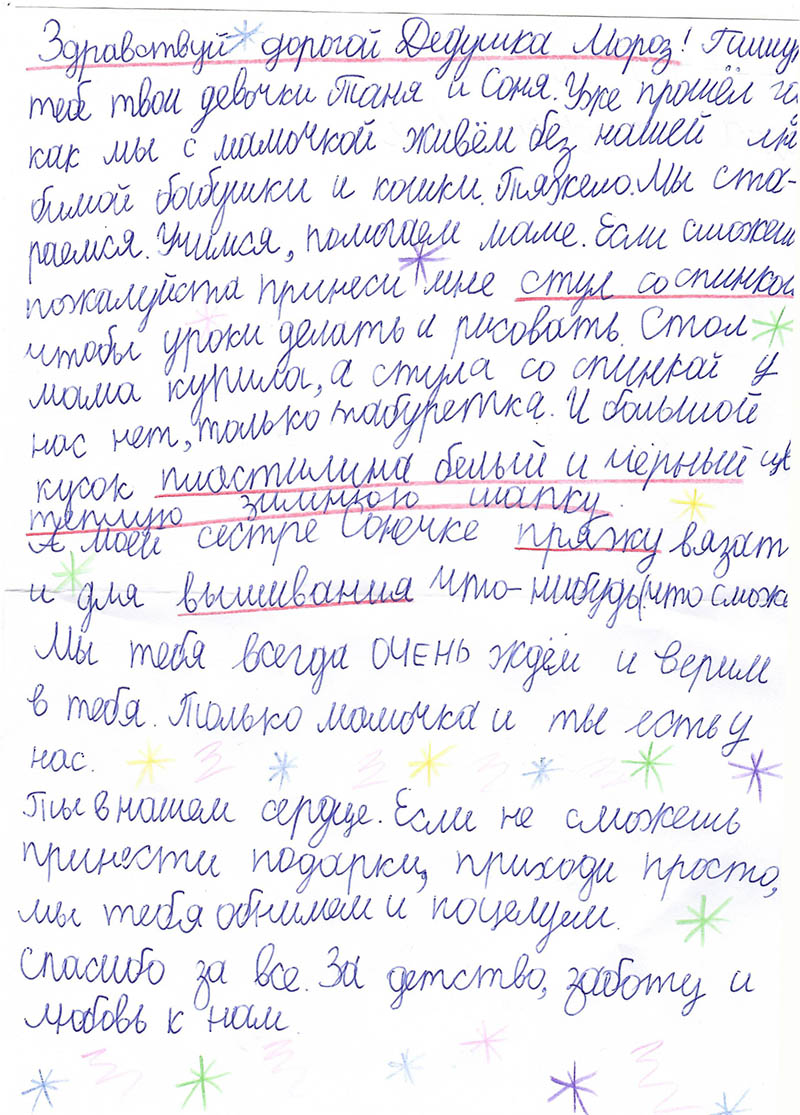 Здравствуй дорогой Дедушка Мороз! Пишу
тебе твои девочки Таня и Соня. Уже прошёл го
как мы с мамочкой живём без нашей лю
бимой бабушки и кошки. Тяжело. Мы ста-
раемся. Учимся, помогаем маме. Если сможеш
пожалуйста принеси мне стул со спинкой
чтобы уроки делать и рисовать. Стол
мама купила, а стула со спинкой у
нас нет, только табуретка. И большой
кусок пластилина белый и чёрный цв
теплую зимнюю шапку.
А моей сестре Сонечке пряжу вязат
и для вышивания что-нибудь(что смож
Мы тебя всегда ОЧЕНЬ ждём и верим
в тебя. Только мамочка и ты есть у
нас.
Ты в нашем сердце. Если не сможешь
принести подарки, приходи просто,
мы тебя обнимем и поцелуем.
Спасибо за все. За детство, заботу и
любовь к нам.